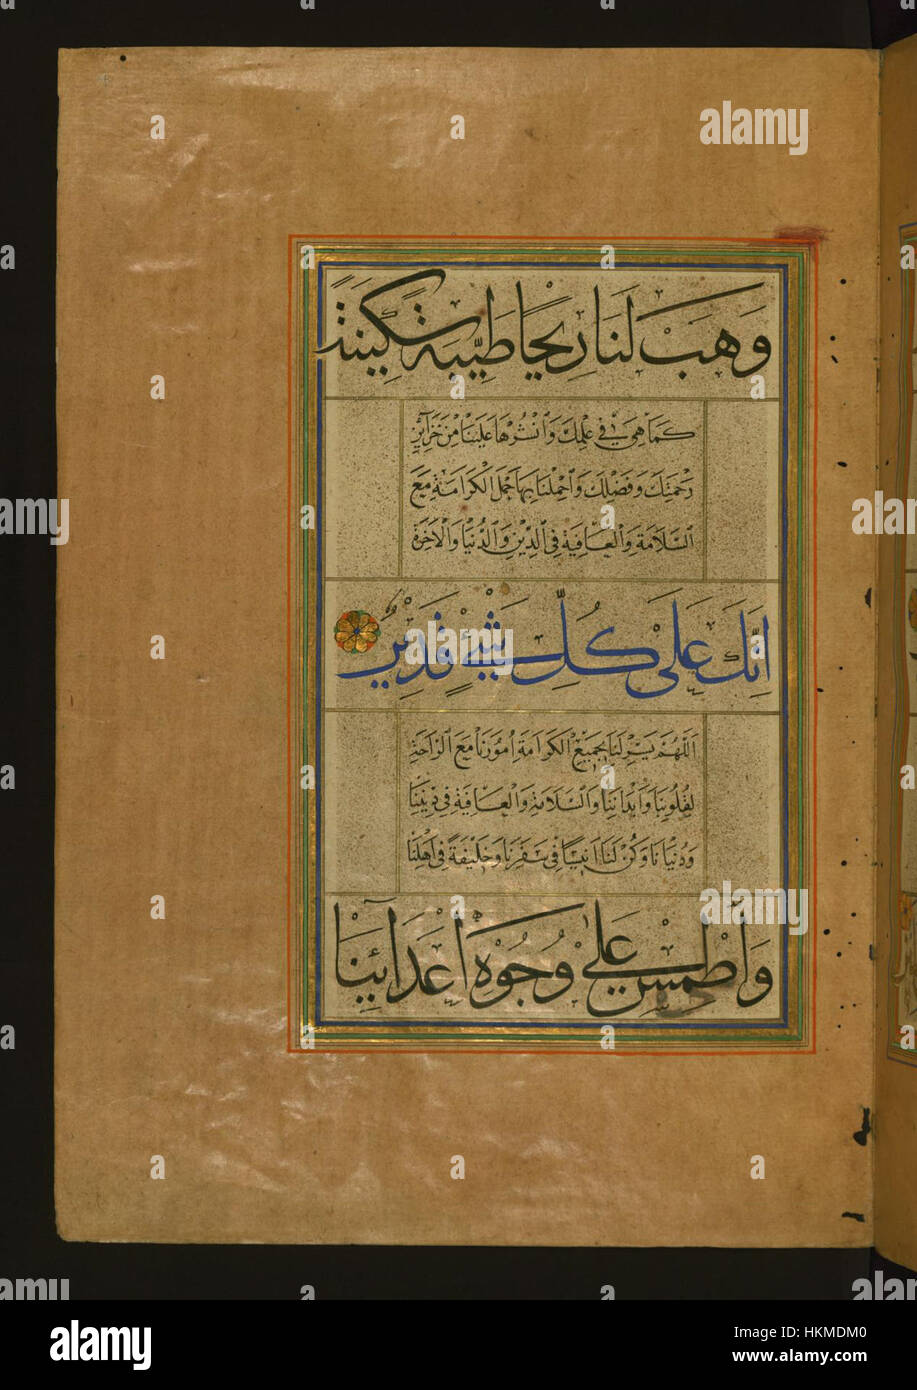 وَهَبْ لَنَا رِيحًا طَيِّبَةً سَكِينَةً
كَمَا هِيَ فِي عِلْمِكَ وَانْشُرْهَا عَلَيْنَا مِنْ خَزَآئِنِ
رَحْمَتِكَ وَفَضْلِكَ وَاحْمِلْنَا بِهَا حَمْلَ الْكَرَامَةِ مَعَ
السَّلَامَةِ وَالْعَافِيَةِ فِي الدِّينِ وَالدُّنْيَا وَالْآخِرَةِ
اِنَّكَ عَلَى كُلِّ شَيْءٍ قَدِيرٌ
اَللَّهُمَّ يَسِّرْ لَنَا بِجَمِيعِ الْكَرَامَةِ اُمُورَنَا مَعَ الرَّاحَةِ
لِقُلُوبِنَا وَاَبْدَانِنَا وَالسَّلَامَةِ وَالْعَافِيَةِ فِي دِينِنَا
وَدُنْيَانَا وَكُنْ لَنَا اَنِيسًا فِي سَفَرِنَا وَخَلِيفَةً فِي اَهْلِنَا
وَاطْمِسْ عَلَى وُجُوهِ اَعْدَآئِنَا
alamy
Image ID: HKMDM0
www.alamy.com